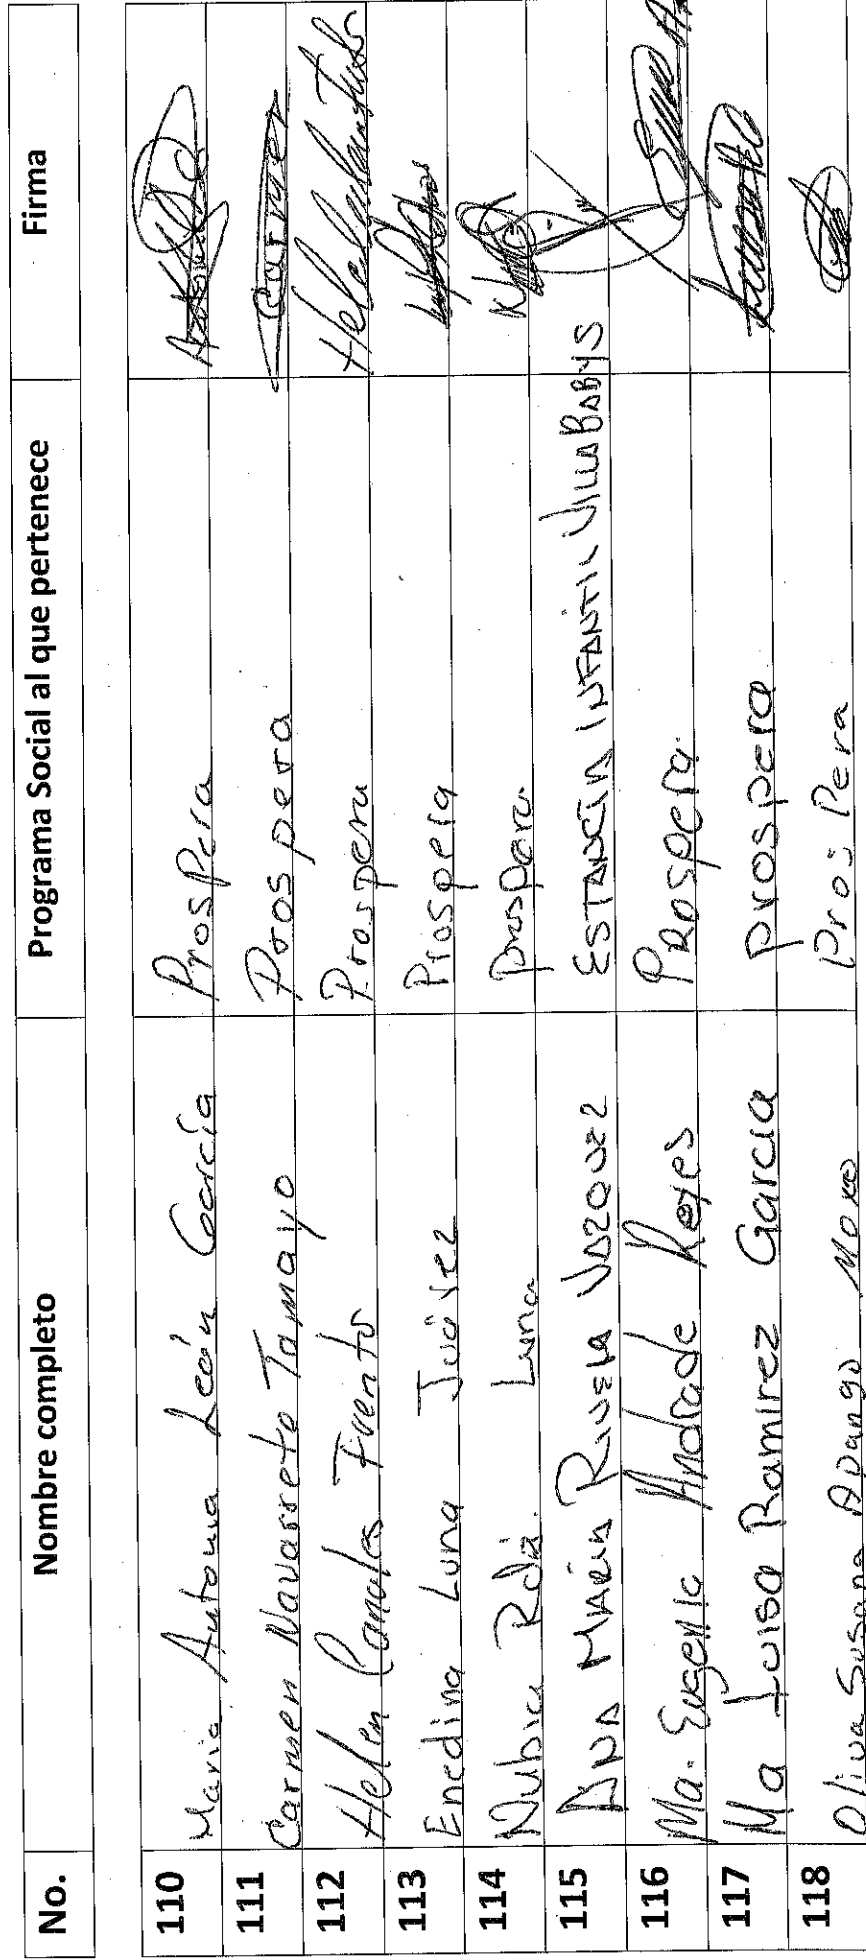 No. Nombre completo Programa Social al que pertenece Firma
110 Maria Antonia León García ProsPera
111 Carmen Navarreto Tamayo Prospera Carmen
112 Helen Canales Prospera
113 Enedina Luna Juárez Prospera
114 Nubia Luna prospera.
115 ANA MARÍA RIVERA VAZQUEZ ESTANCIA INFANTIL VILLA BABYS
116 Ma. Eugenia Andrade Reyes PROSpera.
117 Ma Luisa Ramirez Garcia prospera
118 Oliva Susana Pros Pera